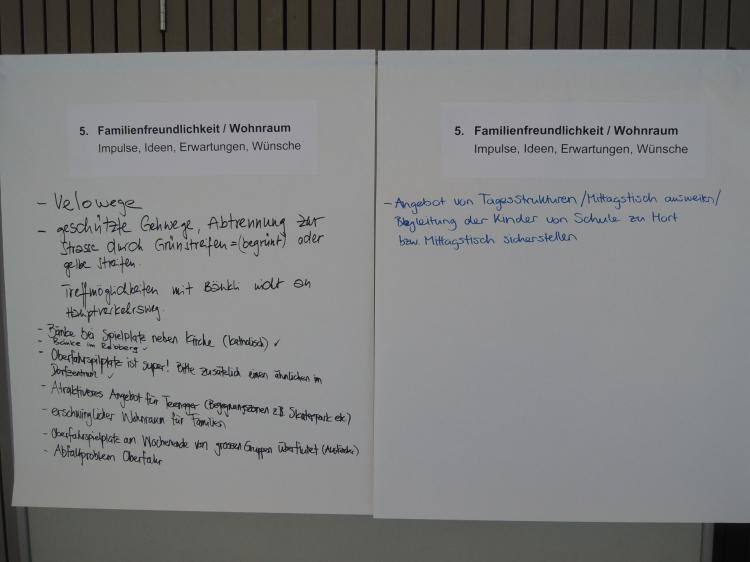 5. Familienfreundlichkeit / Wohnraum
Impulse, Ideen, Erwartungen, Wünsche
- Velowege
- geschützte Gehwege, Abtrennung zur
Strasse durch Grünstreifen = (begrünt) oder
gelbe Streifen.
Treffmöglichkeiten mit Bänkli nicht an
Hauptverkehrsweg.
- Bänke bei Spielplatz neben Kirche (katholisch) ✓
- Bänke im Rebberg ✓
- Oberfahrspilplatz ist super! Bitte zusätzlich einen ähnlichen im
Dorfzentrum ✓
- Atraktiveres Angebot für Teenager (Begegnungszonen zB Skaterpark etc)
- erschwinglicher Wohnraum für Familien
- Oberfahrspielplatz am Wochenende von grossen Gruppen überflutet (Ausländer)
- Abfallproblem Oberfahr
5. Familienfreundlichkeit / Wohnraum
Impulse, Ideen, Erwartungen, Wünsche
- Angebot von Tagesstrukturen / Mittagstisch ausweiten /
Begleitung der Kinder von Schule zu Hort
bzw. Mittagstisch sicherstellen